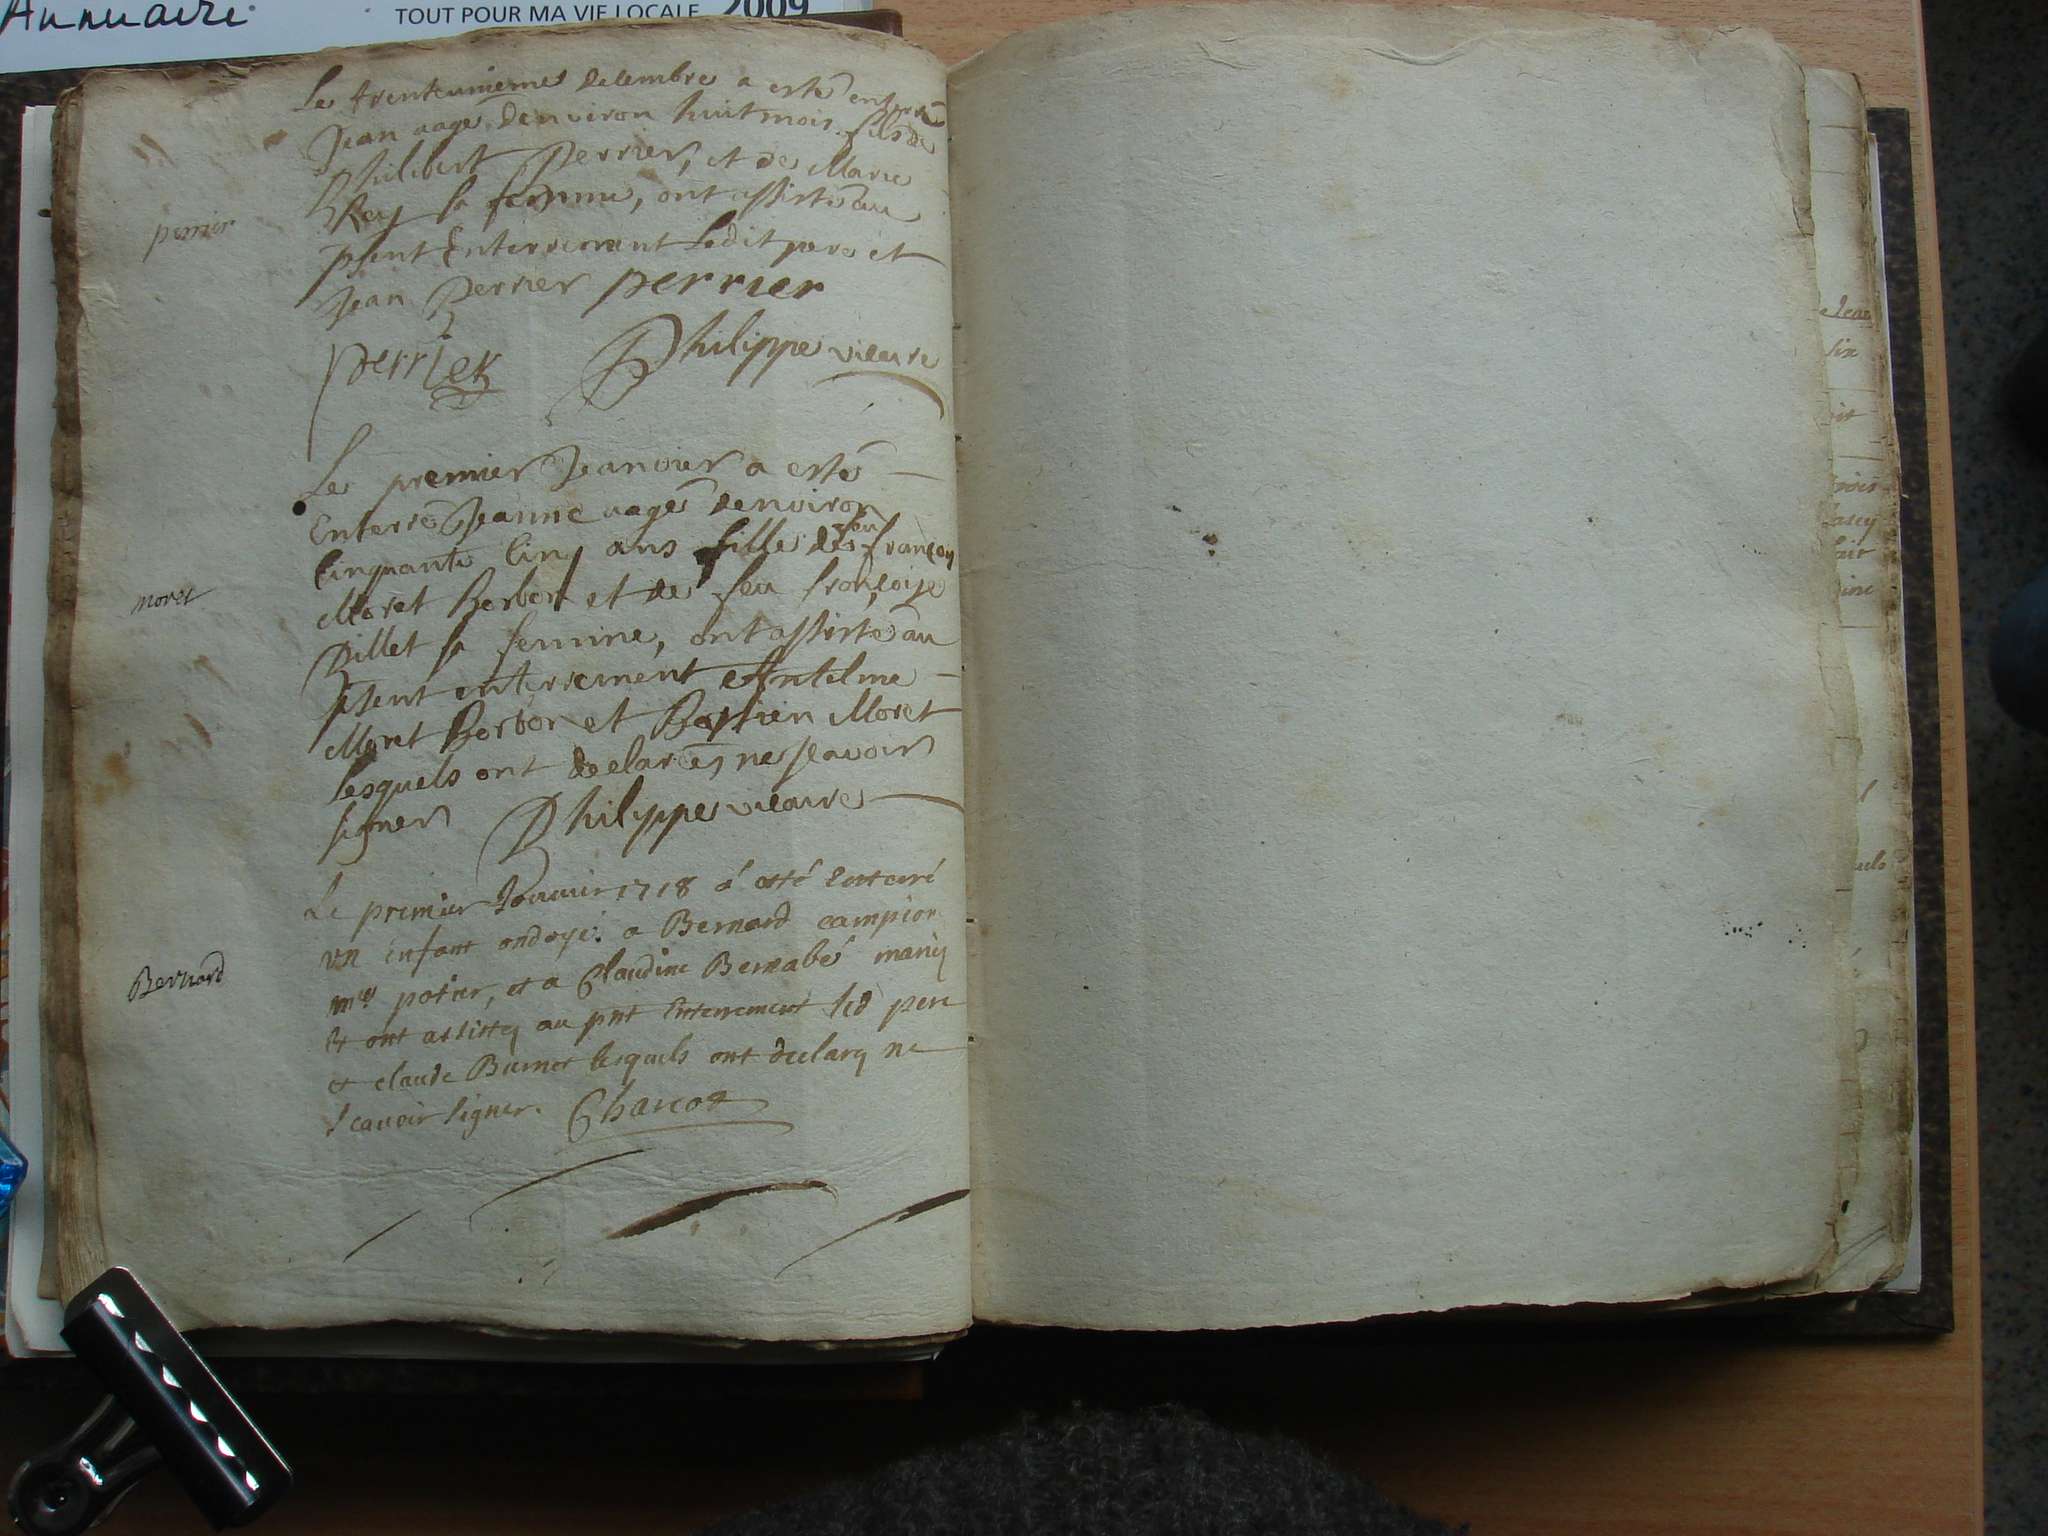 Annuaire
TOUT POUR MA VIE LOCALE 2009
Le trenteunieme decembre a esté enterré
Jean aagé denviron huit mois fils de
Philibert Perrier, et de Marie
Rey sa femme, ont assisté au
pnt Enterrement Ledit pere et
Jean Perrier perrier
perrier Philippe vicaire
perrier
Le premier Jeanvier a esté
Enterré Jeanne aagé denviron
Cinquante Cinq ans fille de feu françois
Moret Berbon et de feu françoise
Billet sa femme, ont assisté au
pnt enterrement Antelme
Moret Berbon et Bastien Moret
lesquels ont declarés ne scavoir
signer Philippe vicaire
moret
Le premier Janvier 1718 a esté Enterré
un enfant ondoyé. a Bernard campion
mre potier, et a Claudine Bernabé mariés
et ont assistez au pnt Enterrement led pere
et claude lesquels ont declaré ne
scavoir signer. Charcot
Bernard